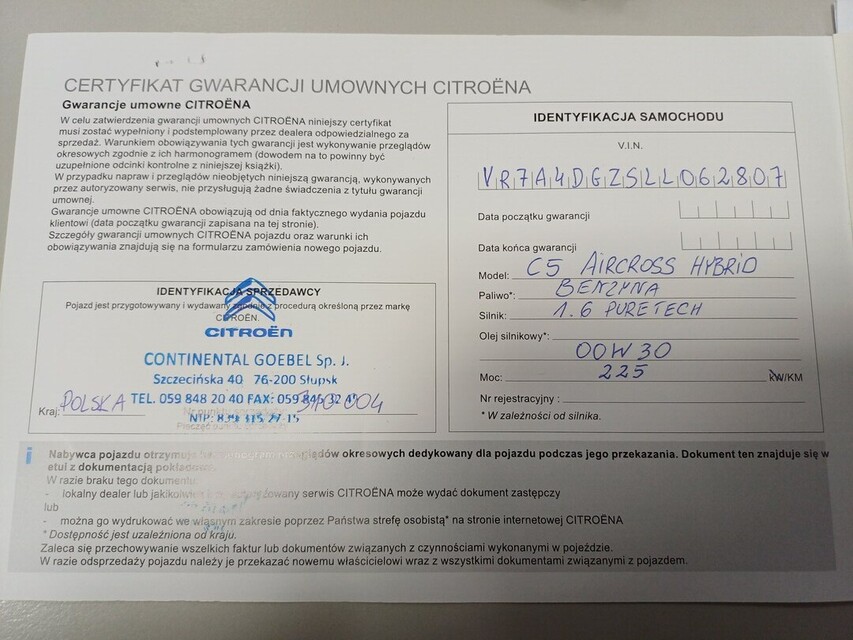 CERTYFIKAT GWARANCJI UMOWNYCH CITROËNA
Gwarancje umowne CITROËNA
W celu zatwierdzenia gwarancji umownych CITROËNA niniejszy certyfikat
musi zostać wypełniony i podstemplowany przez dealera odpowiedzialnego za
sprzedaż. Warunkiem obowiązywania tych gwarancji jest wykonywanie przeglądów
okresowych zgodnie z ich harmonogramem (dowodem na to powinny być
uzupełnione odcinki kontrolne z niniejszej książki).
W przypadku napraw i przeglądów nieobjętych niniejszą gwarancją, wykonywanych
przez autoryzowany serwis, nie przysługują żadne świadczenia z tytułu gwarancji
umownej.
Gwarancje umowne CITROËNA obowiązują od dnia faktycznego wydania pojazdu
klientowi (data początku gwarancji zapisana na tej stronie).
Szczegóły gwarancji umownych CITROËNA pojazdu oraz warunki ich
obowiązywania znajdują się na formularzu zamówienia nowego pojazdu.
IDENTYFIKACJA SPRZEDAWCY
Pojazd jest przygotowywany i wydawany zgodnie z procedurą określoną przez markę
CITROËN.
CITROËN
CONTINENTAL GOEBEL Sp. J.
Szczecińska 40 76-200 Słupsk
TEL. 059 848 20 40 FAX: 059
Kraj: POLSKA
NIP:
IDENTYFIKACJA SAMOCHODU
V.I.N.
VR7A4DGZSLL062807
Data początku gwarancji
Data końca gwarancji
Model: C5 AIRCROSS HYBRID
Paliwo*: BENZYNA
Silnik: 1.6 PURETECH
Olej silnikowy*:
00W30
Moc: 225 kW/KM
Nr rejestracyjny :
* W zależności od silnika.
i
Nabywca pojazdu otrzymuje przeglądów okresowych dedykowany dla pojazdu podczas jego przekazania. Dokument ten znajduje się w
etui z dokumentacją pokładową.
W razie braku tego dokumentu:
- lokalny dealer lub jakikolwiek autoryzowany serwis CITROËNA może wydać dokument zastępczy
lub
- można go wydrukować we własnym zakresie poprzez Państwa strefę osobistą* na stronie internetowej CITROËNA
* Dostępność jest uzależniona od kraju.
Zaleca się przechowywanie wszelkich faktur lub dokumentów związanych z czynnościami wykonanymi w pojeździe.
W razie odsprzedaży pojazdu należy je przekazać nowemu właścicielowi wraz z wszystkimi dokumentami związanymi z pojazdem.